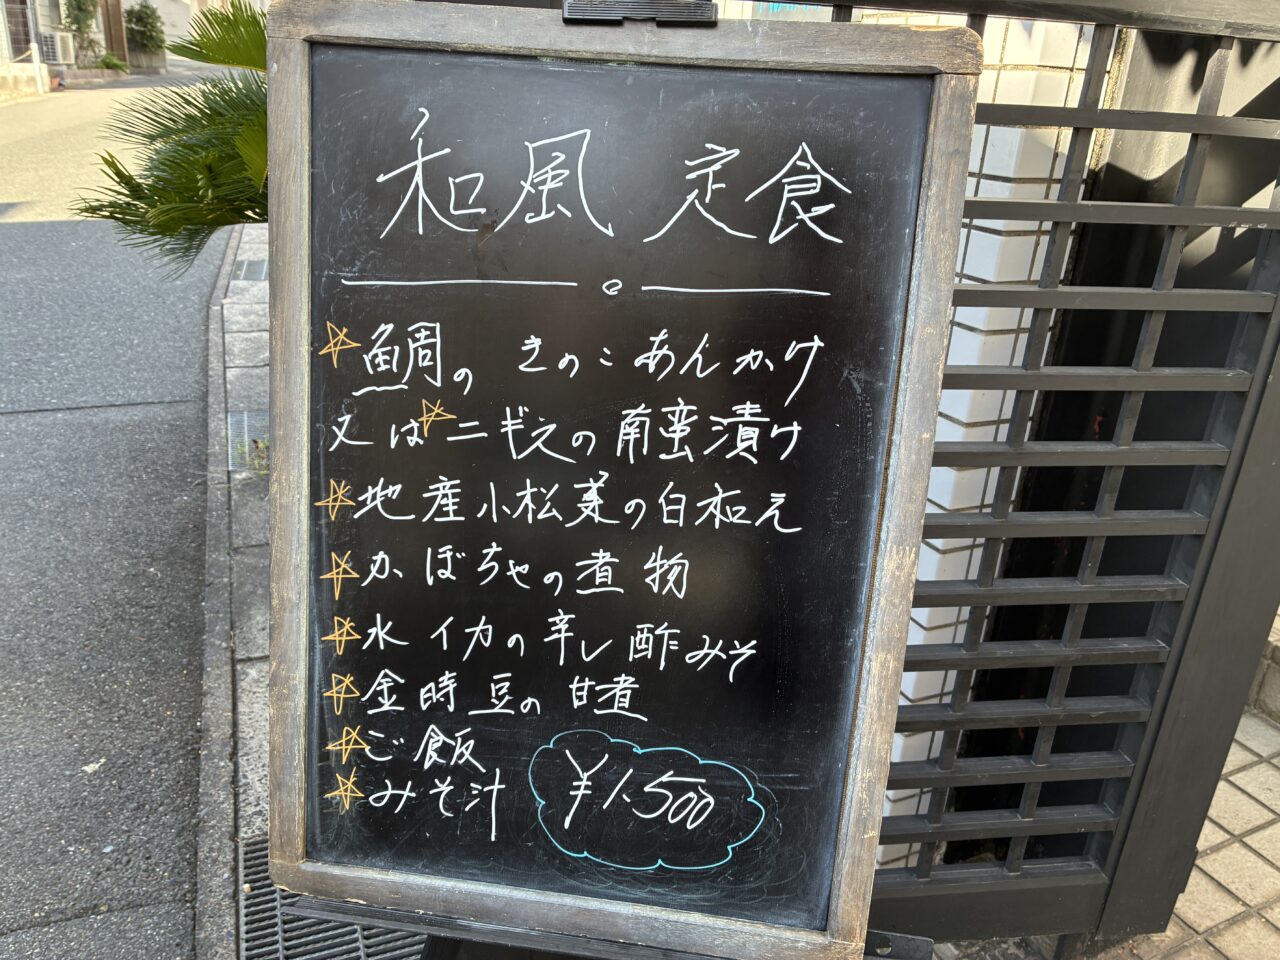 和風 定食
☆鯛の きのこあんかけ
又は☆ニギスの南蛮漬け
☆地産小松菜の白和え
☆かぼちゃの煮物
☆水イカの辛し酢みそ
☆金時豆の甘煮
☆ご飯
☆みそ汁
¥1,500